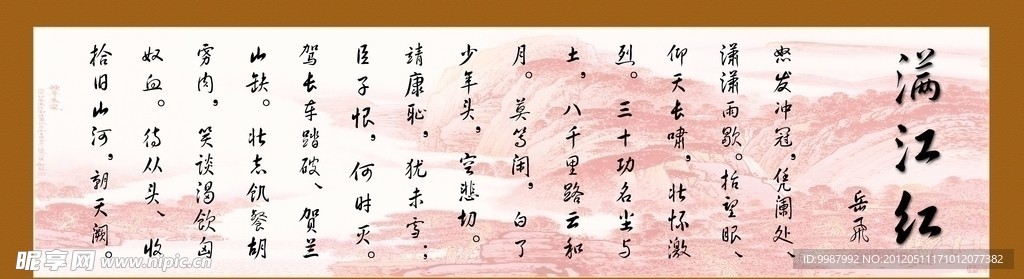 满江红
岳飛
怒发冲冠，凭阑处、
潇潇雨歇。抬望眼、
仰天长啸，壮怀激
烈。三十功名尘与
土，八千里路云和
月。莫等闲，白了
少年头，空悲切。
靖康耻，犹未雪；
臣子恨，何时灭。
驾长车踏破、贺兰
山缺。壮志饥餐胡
虏肉，笑谈渴饮匈
奴血。待从头、收
拾旧山河，朝天阙。
昵享网 www.nipic.com
ID:9987992 NO:20120511171012077382